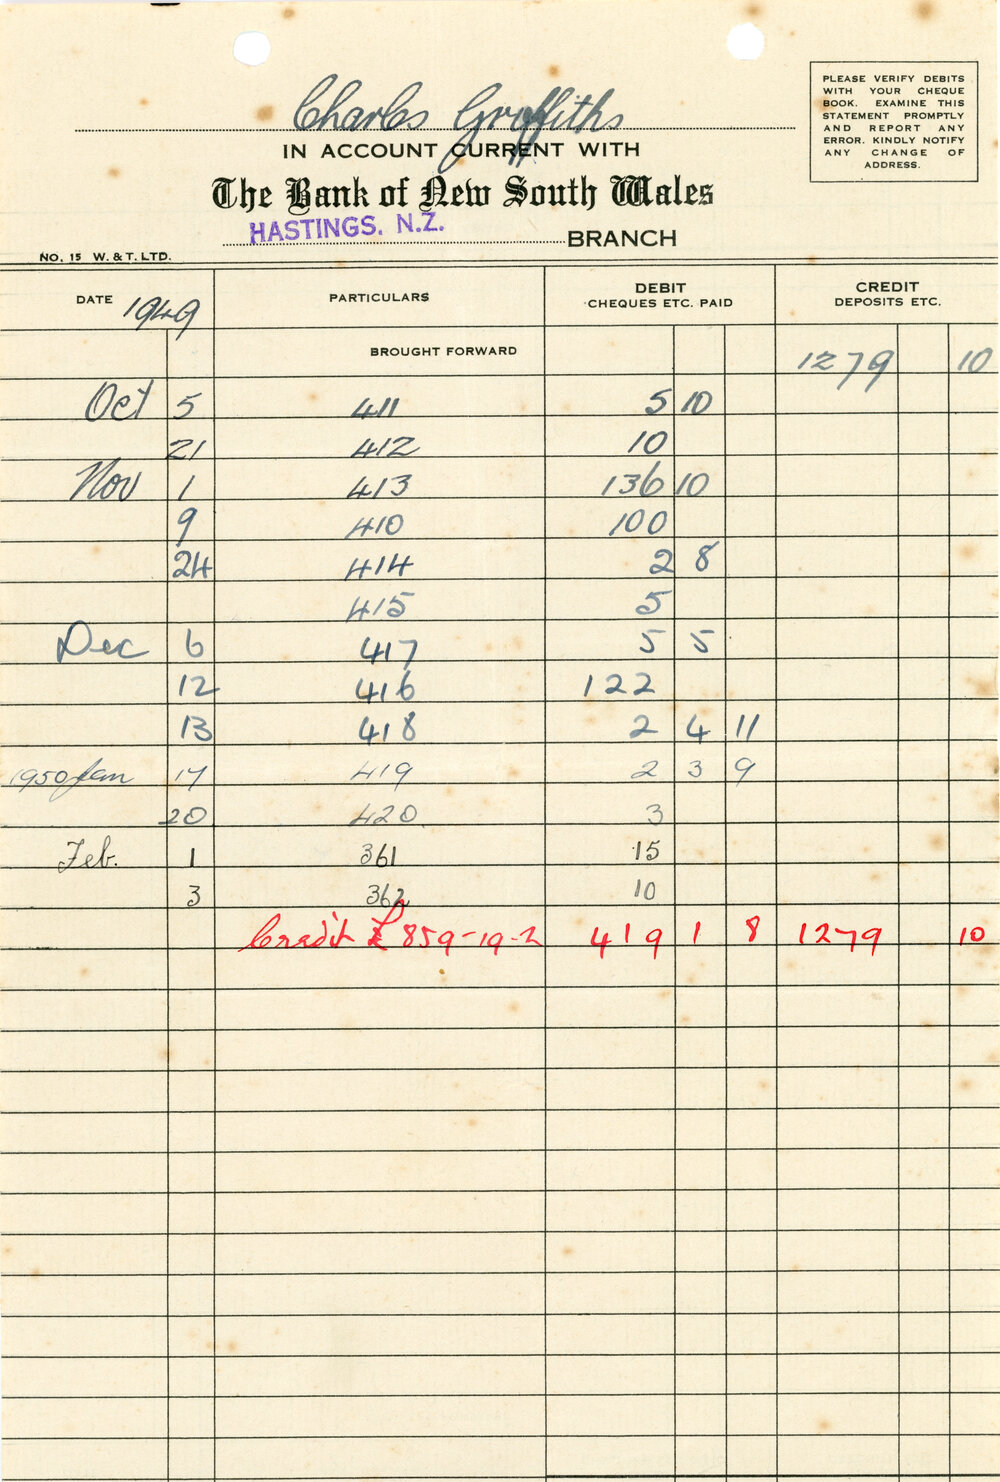 Charles Griffiths
IN ACCOUNT CURRENT WITH
The Bank of New South Wales
HASTINGS. N.Z. BRANCH
PLEASE VERIFY DEBITS
WITH YOUR CHEQUE
BOOK. EXAMINE THIS
STATEMENT PROMPTLY
AND REPORT ANY
ERROR. KINDLY NOTIFY
ANY CHANGE OF
ADDRESS.
NO. 15 W. & T. LTD.
DATE 1949 PARTICULARS DEBIT CHEQUES ETC. PAID CREDIT DEPOSITS ETC.
BROUGHT FORWARD 1279 10
Oct 5 411 5 10
21 412 10
Nov 1 413 136 10
9 410 100
24 414 2 8
415 5
Dec 6 417 5 5
12 416 122
13 418 2 4 11
1950 Jan 17 419 2 3 9
20 420. 3
Feb. 1 361 15
3 362 10
Credit £859-19-2 419 1 8 1279 10